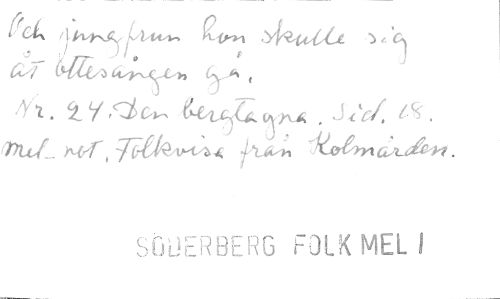 Och jungfrun hon skulle sig
åt ottesången gå.
Nr. 24. Den bergtagna. Sid. 18.
mel-not. Folkvisa från Kolmården.
SÖDERBERG FOLK MEL I